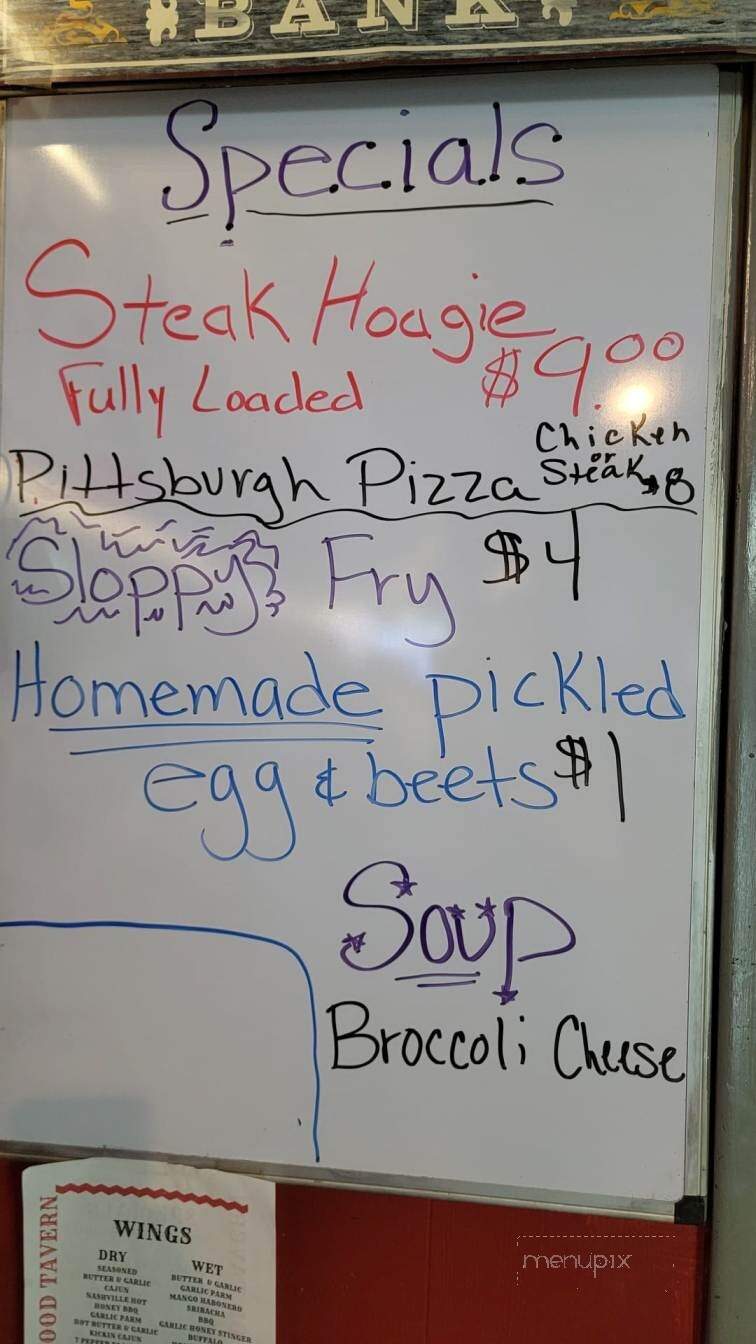 BANK
Specials
Steak Hoagie
Fully Loaded $9.00
Pittsburgh Pizza Chicken or Steak $8
Sloppy Fry $4
Homemade pickled
egg & beets $1
Soup
Broccoli Cheese
OOD TAVERN
WINGS
DRY
SEASONED
BUTTER & GARLIC
CAJUN
NASHVILLE HOT
HONEY BBQ
GARLIC PARM
HOT BUTTER & GARLIC
KICKIN CAJUN
WET
BUTTER & GARLIC
GARLIC PARM
MANGO HABONERO
SRIRACHA
BBQ
GARLIC HONEY STINGER
BUFFALO
menupix